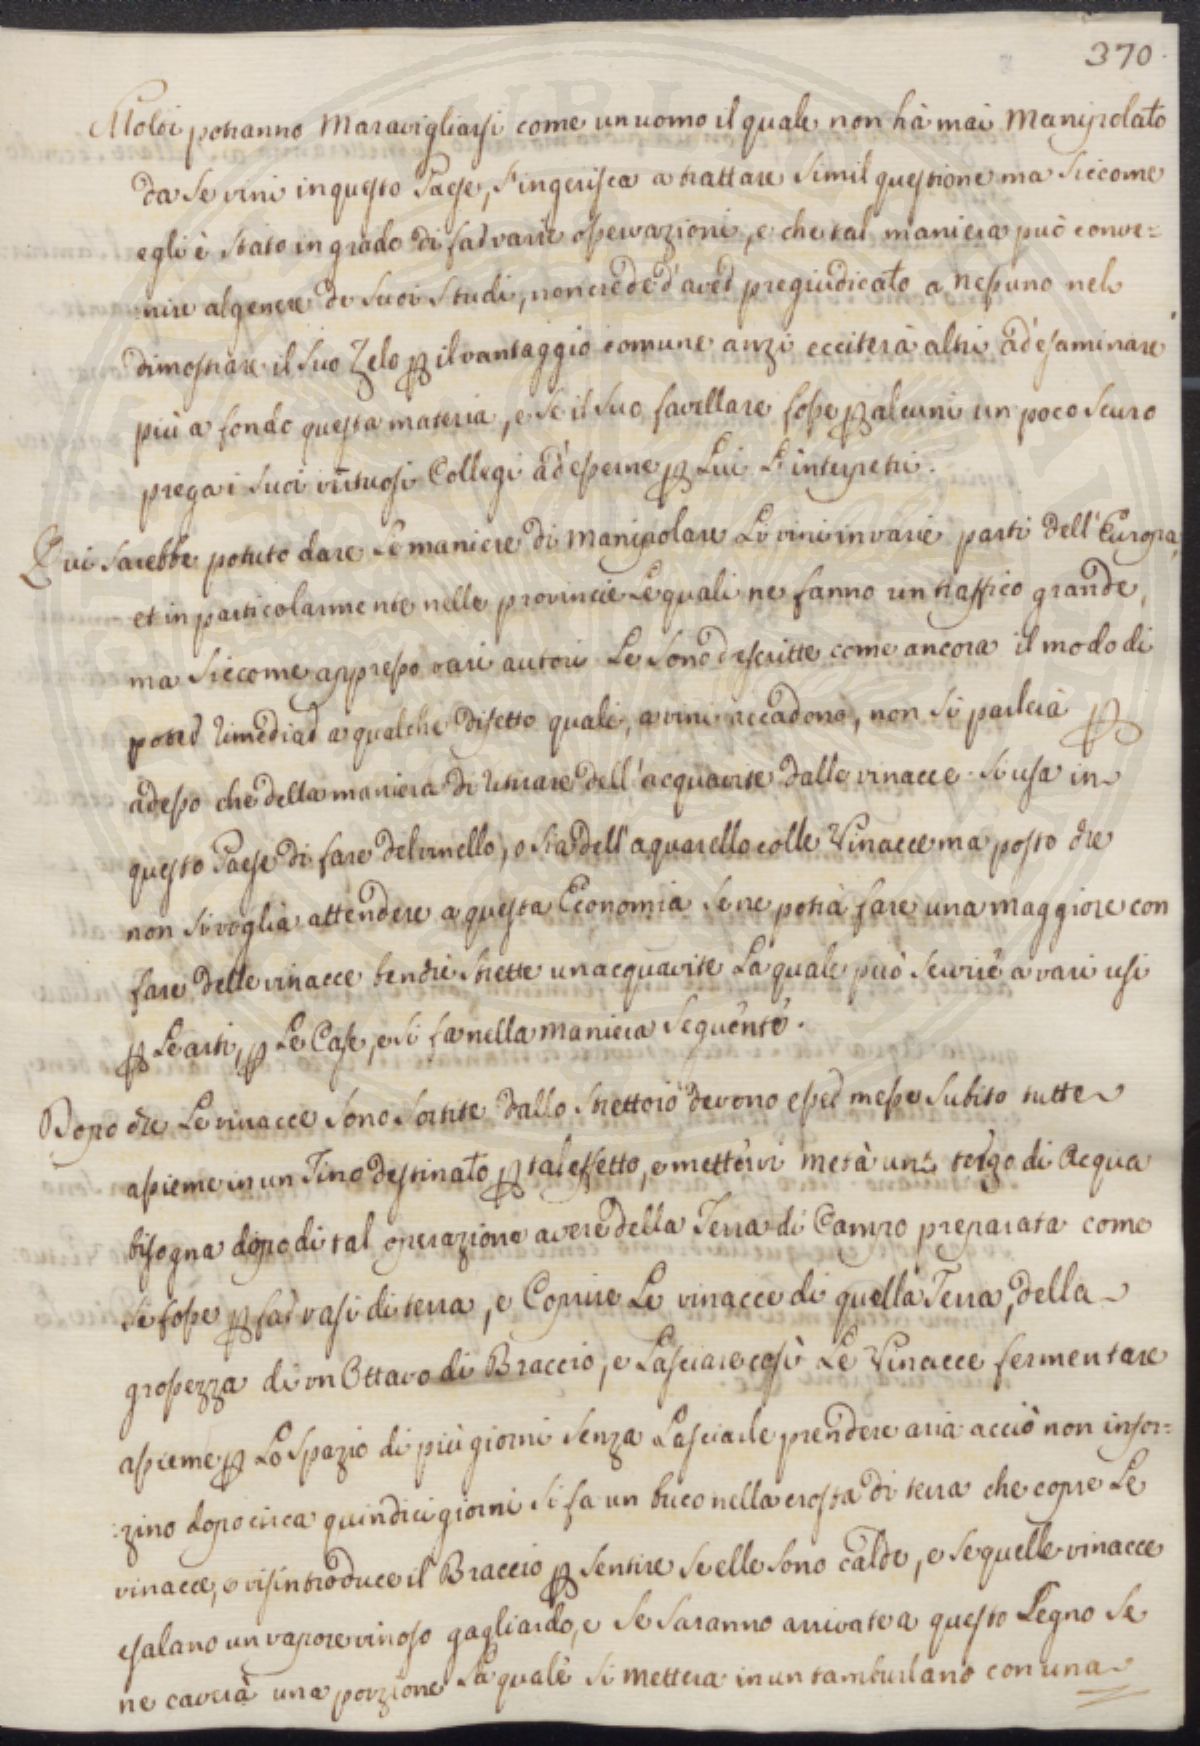 370.
Molti potranno maravigliarsi come un uomo il quale non hà mai manipolato
da se vini in questo Paese, s'ingerisca a trattare simil questione ma siccome
egli è stato in grado di far varie osservazioni, e che tal maniera può conve=
nire al genere de suoi studi, non crede d'aver pregiudicato a nessuno nel
dimostrare il suo zelo p il vantaggio comune anzi ecciterà altri ad esaminare
più a fondo questa materia, e se il suo favellare fosse p alcuni un poco scuro
prega i suoi virtuosi Collegi ad esserne p Lui L'interpretri.
Qui sarebbe potuto dare Le maniere di manipolare Li vini in varie parti dell'Europa,
et in particolarmente nelle provincie Le quali ne fanno un traffico grande,
ma siccome appresso vari autori Le sono descritte come ancora il modo di
poter rimediar a qualche difetto quali, a vini accadono, non si parlerà p
adesso che della maniera di ritirare dell'acquavite dalle vinacce. Si usa in
questo Paese di fare del vinello, o sia dell'aquarello colle Vinacce ma posto che
non si voglia attendere a questa Economia se ne potrà fare una maggiore con
fare delle vinacce benche strette un acquavite La quale può servire a vari usi
p Le arti, p Le Case, e si fa nella maniera seguente.
Dopo che Le vinacce sono sortite dallo strettoio devono esser messe subito tutte
assieme in un Tino destinato p tal effetto, e mettervi metà un terzo di Acqua
bisogna dopo di tal operazione avere della Terra di Campo preparata come
se fosse p far vasi di terra, e Coprire Le vinacce di quella Terra, della
grossezza di un Ottavo di Braccio, e Lasciare così Le Vinacce fermentare
assieme p Lo spazio di più giorni senza Lasciarle prendere aria acciò non infor=
:zino dopo circa quindici giorni si fa un buco nella crosta di terra che copre Le
vinacce, e vi s'introduce il Braccio p sentire se elle sono calde, e se quelle vinacce
esalano un vapore vinoso gagliardo, e se saranno arrivate a questo Segno se
ne caverà una porzione La quale si metterà in un tamburlano con una